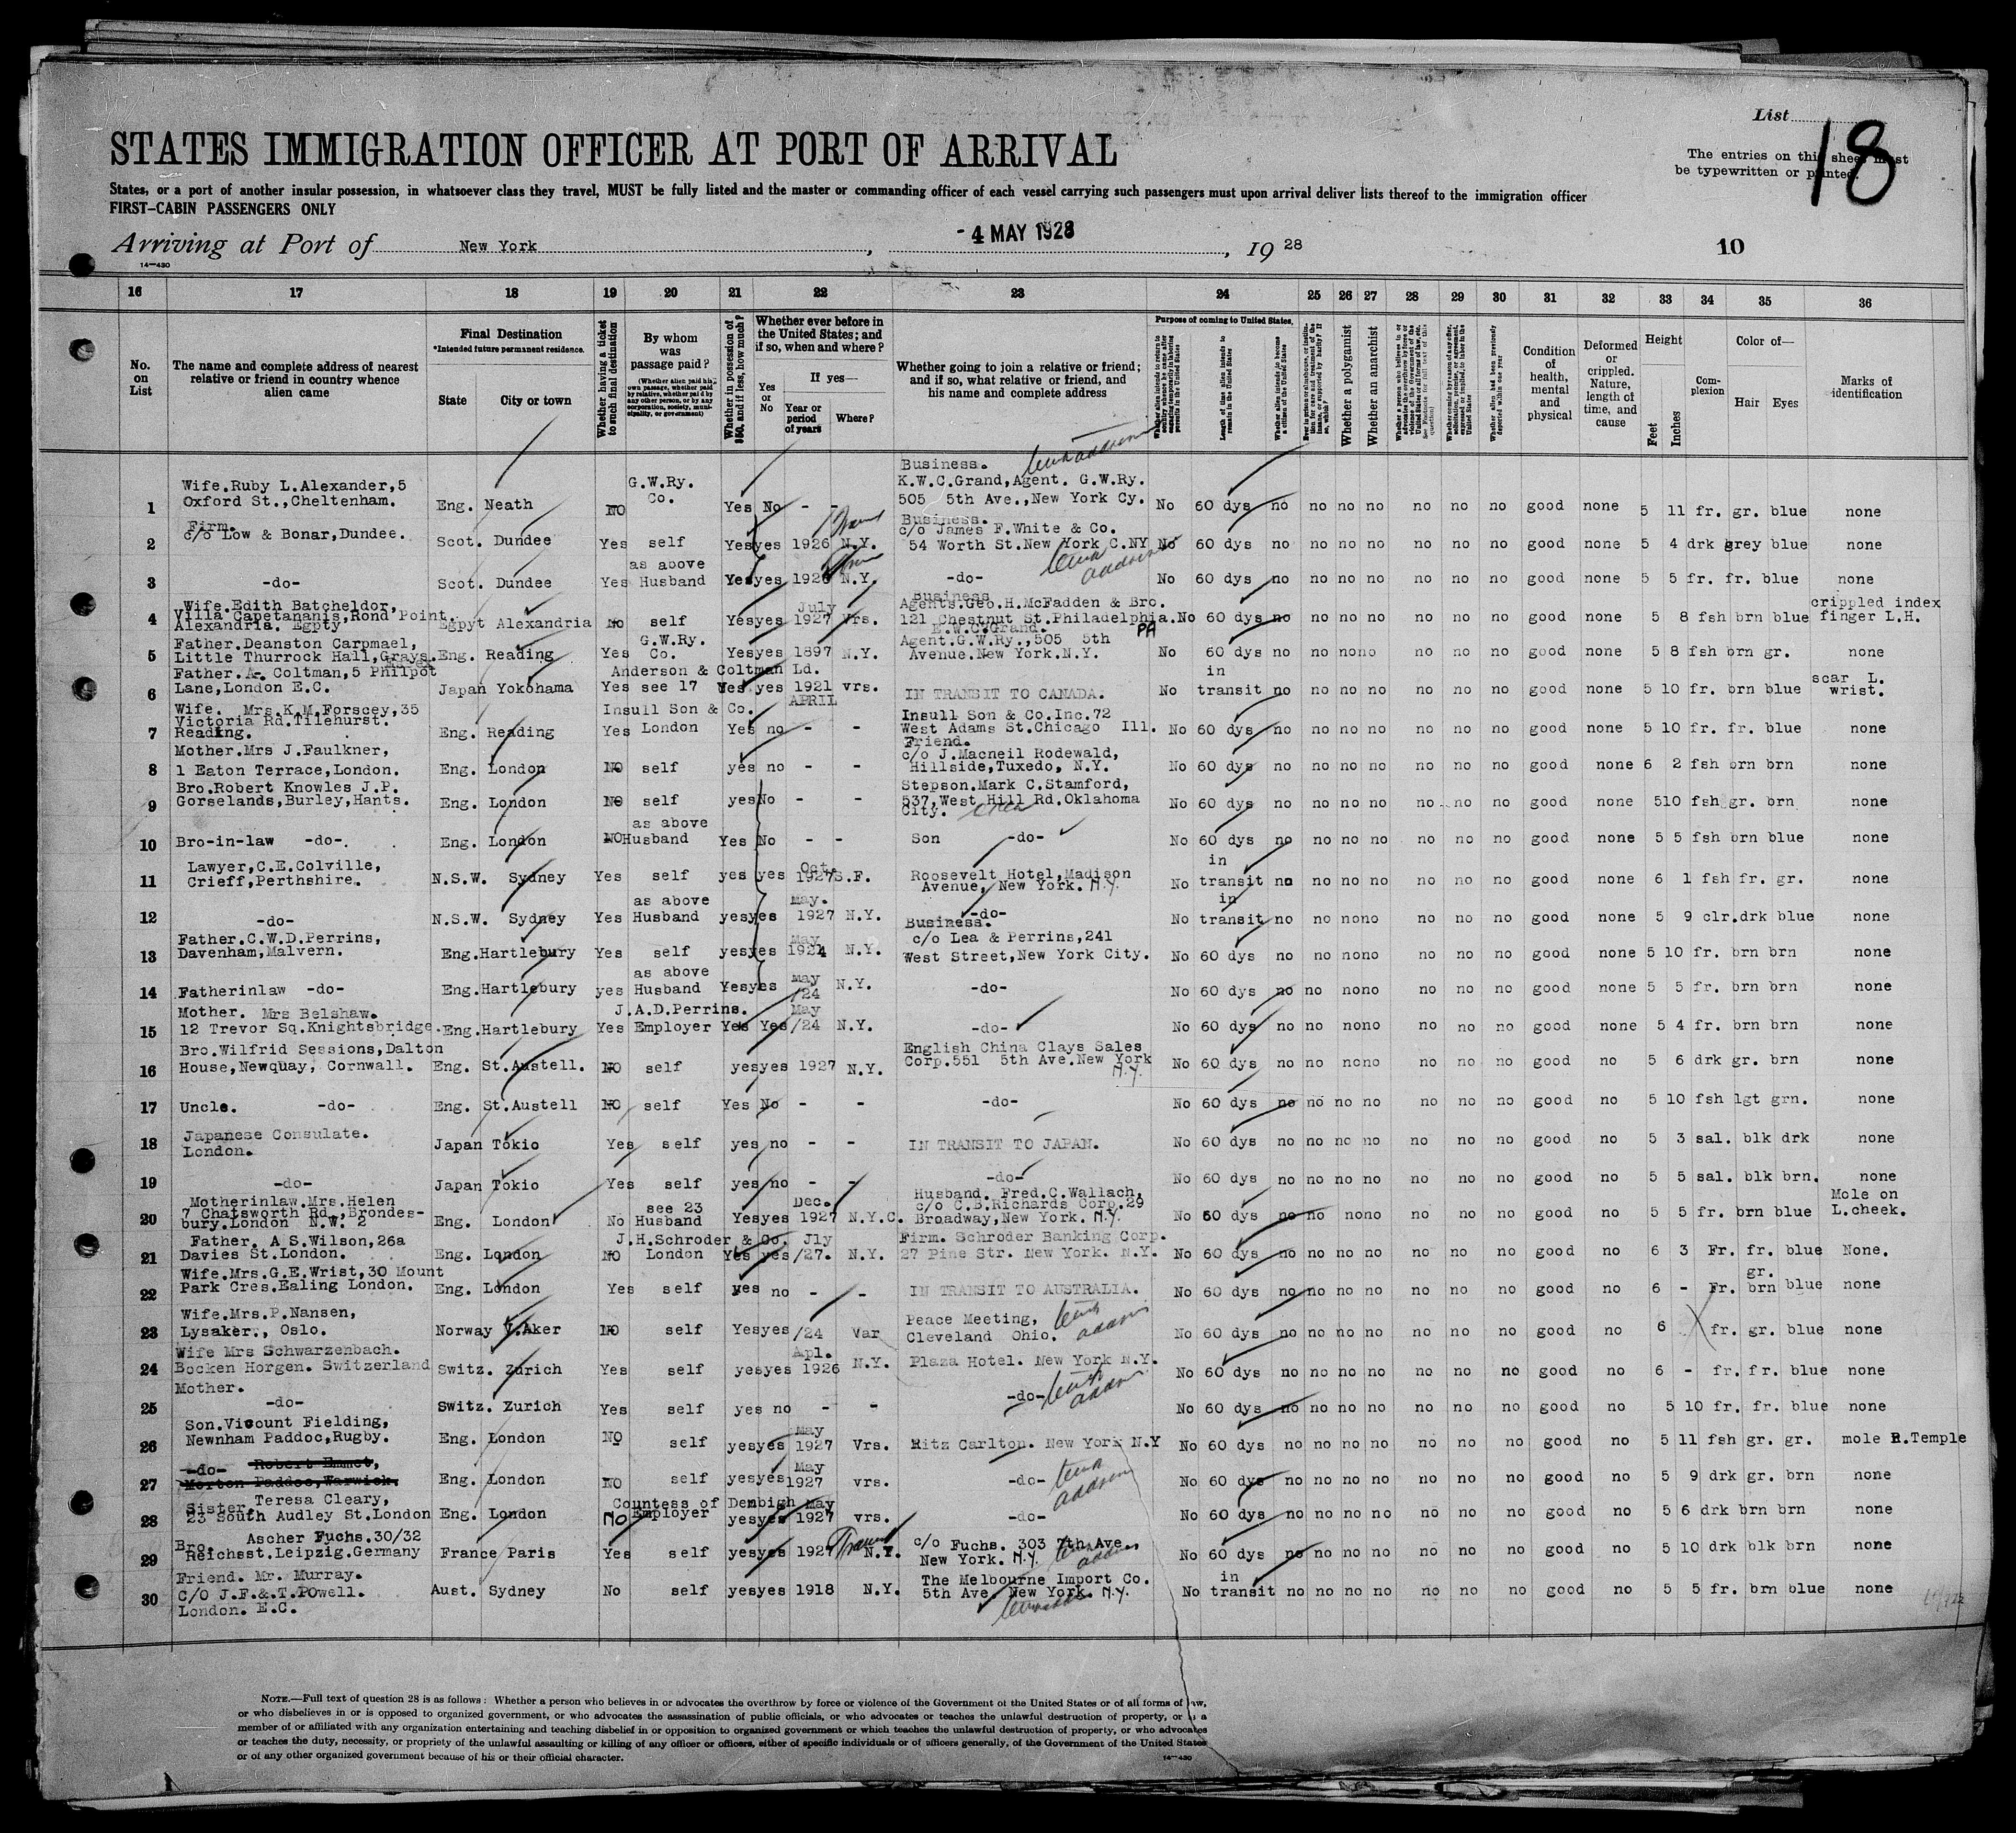 List
18
STATES IMMIGRATION OFFICER AT PORT OF ARRIVAL
The entries on this sheet must
be typewritten or printed.
States, or a port of another insular possession, in whatsoever class they travel, MUST be fully listed and the master or commanding officer of each vessel carrying such passengers must upon arrival deliver lists thereof to the immigration officer
FIRST-CABIN PASSENGERS ONLY
Arriving at Port of New York, - 4 MAY 1928, 19 28
10
14-430
16 17 18 19 20 21 22 23 24 25 26 27 28 29 30 31 32 33 34 35 36
No. on List
The name and complete address of nearest relative or friend in country whence alien came
Final Destination
*Intended future permanent residence.
State
City or town
Whether having a ticket to such final destination
By whom was passage paid?
(Whether alien paid his own passage, whether paid by relative, whether paid by any other person, or by any corporation, society, municipality, or government)
Whether in possession of $50, and if less, how much?
Whether ever before in the United States; and if so, when and where?
Yes or No
If yes—
Year or period of years
Where?
Whether going to join a relative or friend; and if so, what relative or friend, and his name and complete address
Purpose of coming to United States.
Length of time alien intends to remain in the United States
Whether a polygamist
Whether an anarchist
Whether alien had been previously deported within one year
Condition of health, mental and physical
Deformed or crippled. Nature, length of time, and cause
Height
Feet
Inches
Complexion
Color of—
Hair
Eyes
Marks of identification
1 Wife.Ruby L.Alexander,5 Oxford St.,Cheltenham. Eng. Neath NO G.W.Ry. Co. Yes No - - Business. K.W.C.Grand,Agent. G.W.Ry. 505 5th Ave.,New York Cy. No 60 dys no no no no no no no good none 5 11 fr. gr. blue none
2 Firm. c/o Low & Bonar,Dundee. Scot. Dundee Yes self Yes yes 1926 N.Y. Business. c/o James F.White & Co. 54 Worth St.New York C.NY No 60 dys no no no no no no no good none 5 4 drk grey blue none
3 -do- Scot. Dundee Yes as above Husband Yes yes 1926 N.Y. -do- No 60 dys no no no no no no no good none 5 5 fr. fr. blue none
4 Wife.Edith Batcheldor, Villa Capetananis,Rond Point. Alexandria. Egpty Egpyt Alexandria no self Yes yes July 1927 Vrs. Business Agents.Geo.H.McFadden & Bro. 121 Chestnut St.Philadelphia. PA No 60 dys no no no no no no no good none 5 8 fsh brn blue crippled index finger L.H.
5 Father.Deanston Carpmael, Little Thurrock Hall,Grays. Eng. Reading Yes G.W.Ry. Co. Yes yes 1897 N.Y. E.W.C.Grand. Agent.G.W.Ry.,505 5th Avenue.New York.N.Y. No 60 dys no no no no no no no good none 5 8 fsh brn gr. none
6 Father.A. Coltman,5 Philpot Lane,London E.C. Japan Yokohama Yes Anderson & Coltman Ld. see 17 Yes yes 1921 vrs. IN TRANSIT TO CANADA. No in transit no no no no no no no good none 5 10 fr. brn blue scar L. wrist.
7 Wife. Mrs.K.M.Forscey,35 Victoria Rd.Tilehurst. Reading. Eng. Reading Yes Insull Son & Co. London Yes no APRIL - - Insull Son & Co.Inc.72 West Adams St.Chicago Ill. No 60 dys no no no no no no no good none 5 10 fr. fr. blue none
8 Mother.Mrs J.Faulkner, 1 Eaton Terrace,London. Eng. London NO self yes no - - Friend. c/o J.Macneil Rodewald, Hillside,Tuxedo, N.Y. No 60 dys no no no no no no no good none 6 2 fsh brn brn none
9 Bro.Robert Knowles J.P. Gorselands,Burley,Hants. Eng. London NO self yes No - - Stepson.Mark C.Stamford, 537,West Hill Rd.Oklahoma City. No 60 dys no no no no no no no good none 5 10 fsh gr. brn none
10 Bro-in-law -do-. Eng. London NO as above Husband Yes No - - Son -do- No 60 dys no no no no no no no good none 5 5 fsh brn blue none
11 Lawyer,C.E.Colville, Crieff,Perthshire. N.S.W. Sydney Yes self yes yes Oct. 1927 S.F. Roosevelt Hotel,Madison Avenue, New York. N.Y. No in transit no no no no no no no good none 6 1 fsh fr. gr. none
12 -do- N.S.W. Sydney Yes as above Husband yes yes May. 1927 N.Y. -do- No in transit no no no no no no no good none 5 9 clr. drk blue none
13 Father.C.W.D.Perrins, Davenham,Malvern. Eng. Hartlebury Yes self yes yes May 1924 N.Y. Business. c/o Lea & Perrins,241 West Street,New York City. No 60 dys no no no no no no no good none 5 10 fr. brn brn none
14 Fatherinlaw -do- Eng. Hartlebury yes as above Husband Yes yes May /24 N.Y. -do- No 60 dys no no no no no no no good none 5 5 fr. brn brn none
15 Mother. Mrs Belshaw. 12 Trevor Sq.Knightsbridge. Eng. Hartlebury Yes J.A.D.Perrins. Employer Yes Yes May /24 N.Y. -do- No 60 dys no no no no no no no good none 5 4 fr. brn brn none
16 Bro.Wilfrid Sessions,Dalton House,Newquay, Cornwall. Eng. St.Austell. NO self yes yes 1927 N.Y. English China Clays Sales Corp.551 5th Ave.New York N.Y. No 60 dys no no no no no no no good no 5 6 drk gr. brn none
17 Uncle. -do- Eng. St.Austell NO self Yes No - - -do- No 60 dys no no no no no no no good no 5 10 fsh lgt grn. none
18 Japanese Consulate. London. Japan Tokio Yes self yes no - - IN TRANSIT TO JAPAN. No 60 dys no no no no no no no good no 5 3 sal. blk drk none
19 -do- Japan Tokio Yes self yes no - - -do- No 60 dys no no no no no no no good no 5 5 sal. blk brn. none
20 Motherinlaw.Mrs.Helen 7 Chatsworth Rd.,Brondes- bury.London N.W. 2 Eng. London No see 23 Husband Yes yes Dec. 1927 N.Y.C. Husband. Fred.C.Wallach, c/o C.B.Richards Corp.29 Broadway,New York. N.Y. No 60 dys no no no no no no no good no 5 5 fr. brn blue Mole on L.cheek.
21 Father. A S.Wilson,26a Davies St.London. Eng. London NO J.H.Schroder & Co. London Yes yes Jly /27. N.Y. Firm. Schroder Banking Corp. 27 Pine Str. New York. N.Y. No 60 dys no no no no no no no good no 6 3 Fr. fr. blue None.
22 Wife.Mrs.G.E.Wrist,30 Mount Park Cres.Ealing London. Eng. London Yes self yes no - - IN TRANSIT TO AUSTRALIA. No 60 dys no no no no no no no good no 6 - Fr. gr. brn blue none
23 Wife.Mrs.P.Nansen, Lysaker., Oslo. Norway V.Aker NO self Yes yes /24 Var Peace Meeting, Cleveland Ohio. No 60 dys no no no no no no no good no 6 fr. gr. blue none
24 Wife Mrs Schwarzenbach. Bocken Horgen. Switzerland Switz. Zurich Yes self yes yes Apl. 1926 N.Y. Plaza Hotel. New York N.Y. No 60 dys no no no no no no no good no 6 - fr. fr. blue none
25 Mother. -do- Switz. Zurich Yes self yes no - - -do- No 60 dys no no no no no no no good no 5 10 fr. fr. blue none
26 Son.Vicount Fielding, Newnham Paddoc,Rugby. Eng. London NO self yes yes May 1927 Vrs. Ritz Carlton. New York N.Y No 60 dys no no no no no no no good no 5 11 fsh gr. gr. mole R.Temple
27 -do- Robert Emmet, Morton Paddoc,Warwick. Eng. London NO self yes yes May 1927 vrs. -do- No 60 dys no no no no no no no good no 5 9 drk gr. brn none
28 Sister. Teresa Cleary, 23 South Audley St.London Eng. London NO Countess of Denbigh Employer yes yes May 1927 vrs. -do- No 60 dys no no no no no no no good no 5 6 drk brn brn none
29 Bro. Ascher Fuchs.30/32 Reichsst.Leipzig.Germany France Paris Yes self yes yes 1927 N.Y. c/o Fuchs. 303 7th Ave. New York. N.Y. No 60 dys no no no no no no no good no 5 10 drk blk brn none
30 Friend. Mr. Murray. C/O J.F.&.T.POwell. London. E.C. Aust. Sydney No self yes yes 1918 N.Y. The Melbourne Import Co. 5th Ave. New York. N.Y. No in transit no no no no no no no good no 5 5 fr. brn blue none
NOTE.—Full text of question 28 is as follows: Whether a person who believes in or advocates the overthrow by force or violence of the Government of the United States or of all forms of law,
or who disbelieves in or is opposed to organized government, or who advocates the assassination of public officials, or who advocates or teaches the unlawful destruction of property, or is a
member of or affiliated with any organization entertaining and teaching disbelief in or opposition to organized government or which teaches the unlawful destruction of property, or who advocates
or teaches the duty, necessity, or propriety of the unlawful assaulting or killing of any officer or officers, either of specific individuals or of officers generally, of the Government of the United States
or of any other organized government because of his or their official character.
14-430